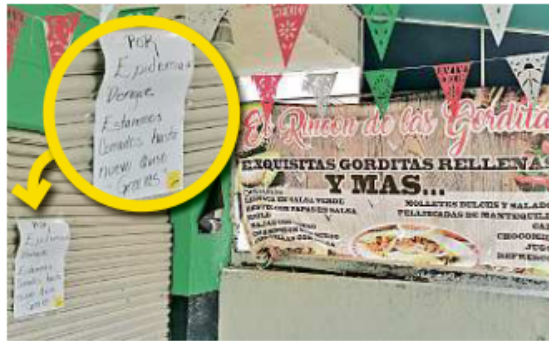 POR
Epidemia
Dengue
Estaremos
Cerrados hasta
nuevo aviso
Gracias
POR
Epidemia
Dengue
Estaremos
Cerrados hasta
nuevo aviso
Gracias
El Rincon de las Gordita
EXQUISITAS GORDITAS RELLENAS
Y MAS...
SALSA VERDE
CON PAPAS EN SALSA
RAJAS CON
MOLLETES DULCES Y SALADO
PELLIZCADAS DE MANTEQUILL
CA
CHOCOMI
JUG
REFRESCO